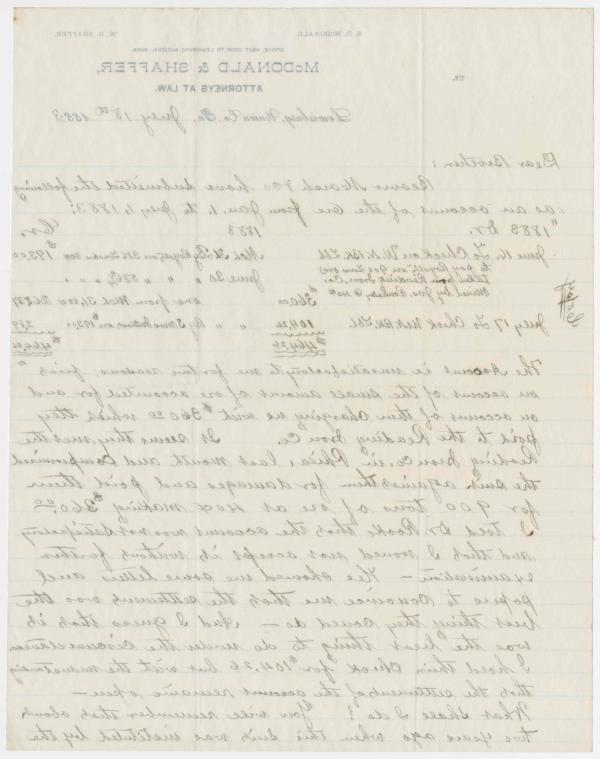 S. D. McDONALD. W. D. SHAFFER.
OFFICE, NEXT DOOR TO LEWISBURG NATIONAL BANK.
McDONALD & SHAFFER,
ATTORNEYS AT LAW.
Lewisburg, Union Co. Pa. July 18th 1883
Dear Brother:
Beaver Marsh & Co have submitted the following
as an account of the Ore from Jan. 1, to July 1, 1883:
1883 Dr. 1883 Cr.
June 16 To Check on U. N. Bk.
to pay Royalty on 900 Tons ore
taken from Reading Iron Co.
Mined by Geo @ 40¢ $360.00
July 17 To Check U. N. Bk. 104.26
$464.26 $464.26
The Account is unsatisfactory to me for two reasons: first
on account of the small amount of ore accounted for and
on account of their charging me with $360.00 which they
paid to the Reading Iron Co. It seems they met the
Reading Iron Co. in Phila, last month and compromised
the suit against them for damages and paid them
for 900 tons of ore at 40¢ making $360.00
I told Dr Rooke that the account was not satisfactory
and that I would not accept it without further
examination — He showed me some letters and
papers to convince me that the settlement was the
best thing they could do — And I guess that it
was the best thing to do under the circumstances
I hold their check for $104.26 but with the understanding
that the settlement of the account remains open —
What shall I do? You will remember that about
two years ago when this suit was instituted by the